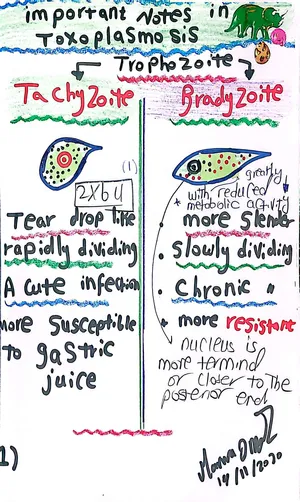 important Notes in
Toxoplasmosis
Trophozoite
Tachyzoite
(1)
2x6 μ
Tear drop like
rapidly dividing
Acute infection
more susceptible
to gastric
juice
1)
Bradyzoite
greatly
with reduced
metabolic activity
• more slender
• slowly dividing
• chronic "
• more resistant
nucleus is
more termind
or closer to the
posterior end
14/11/2020